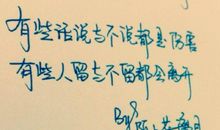 有些话说与不说都是伤害
有些人留与不留都会离开
By